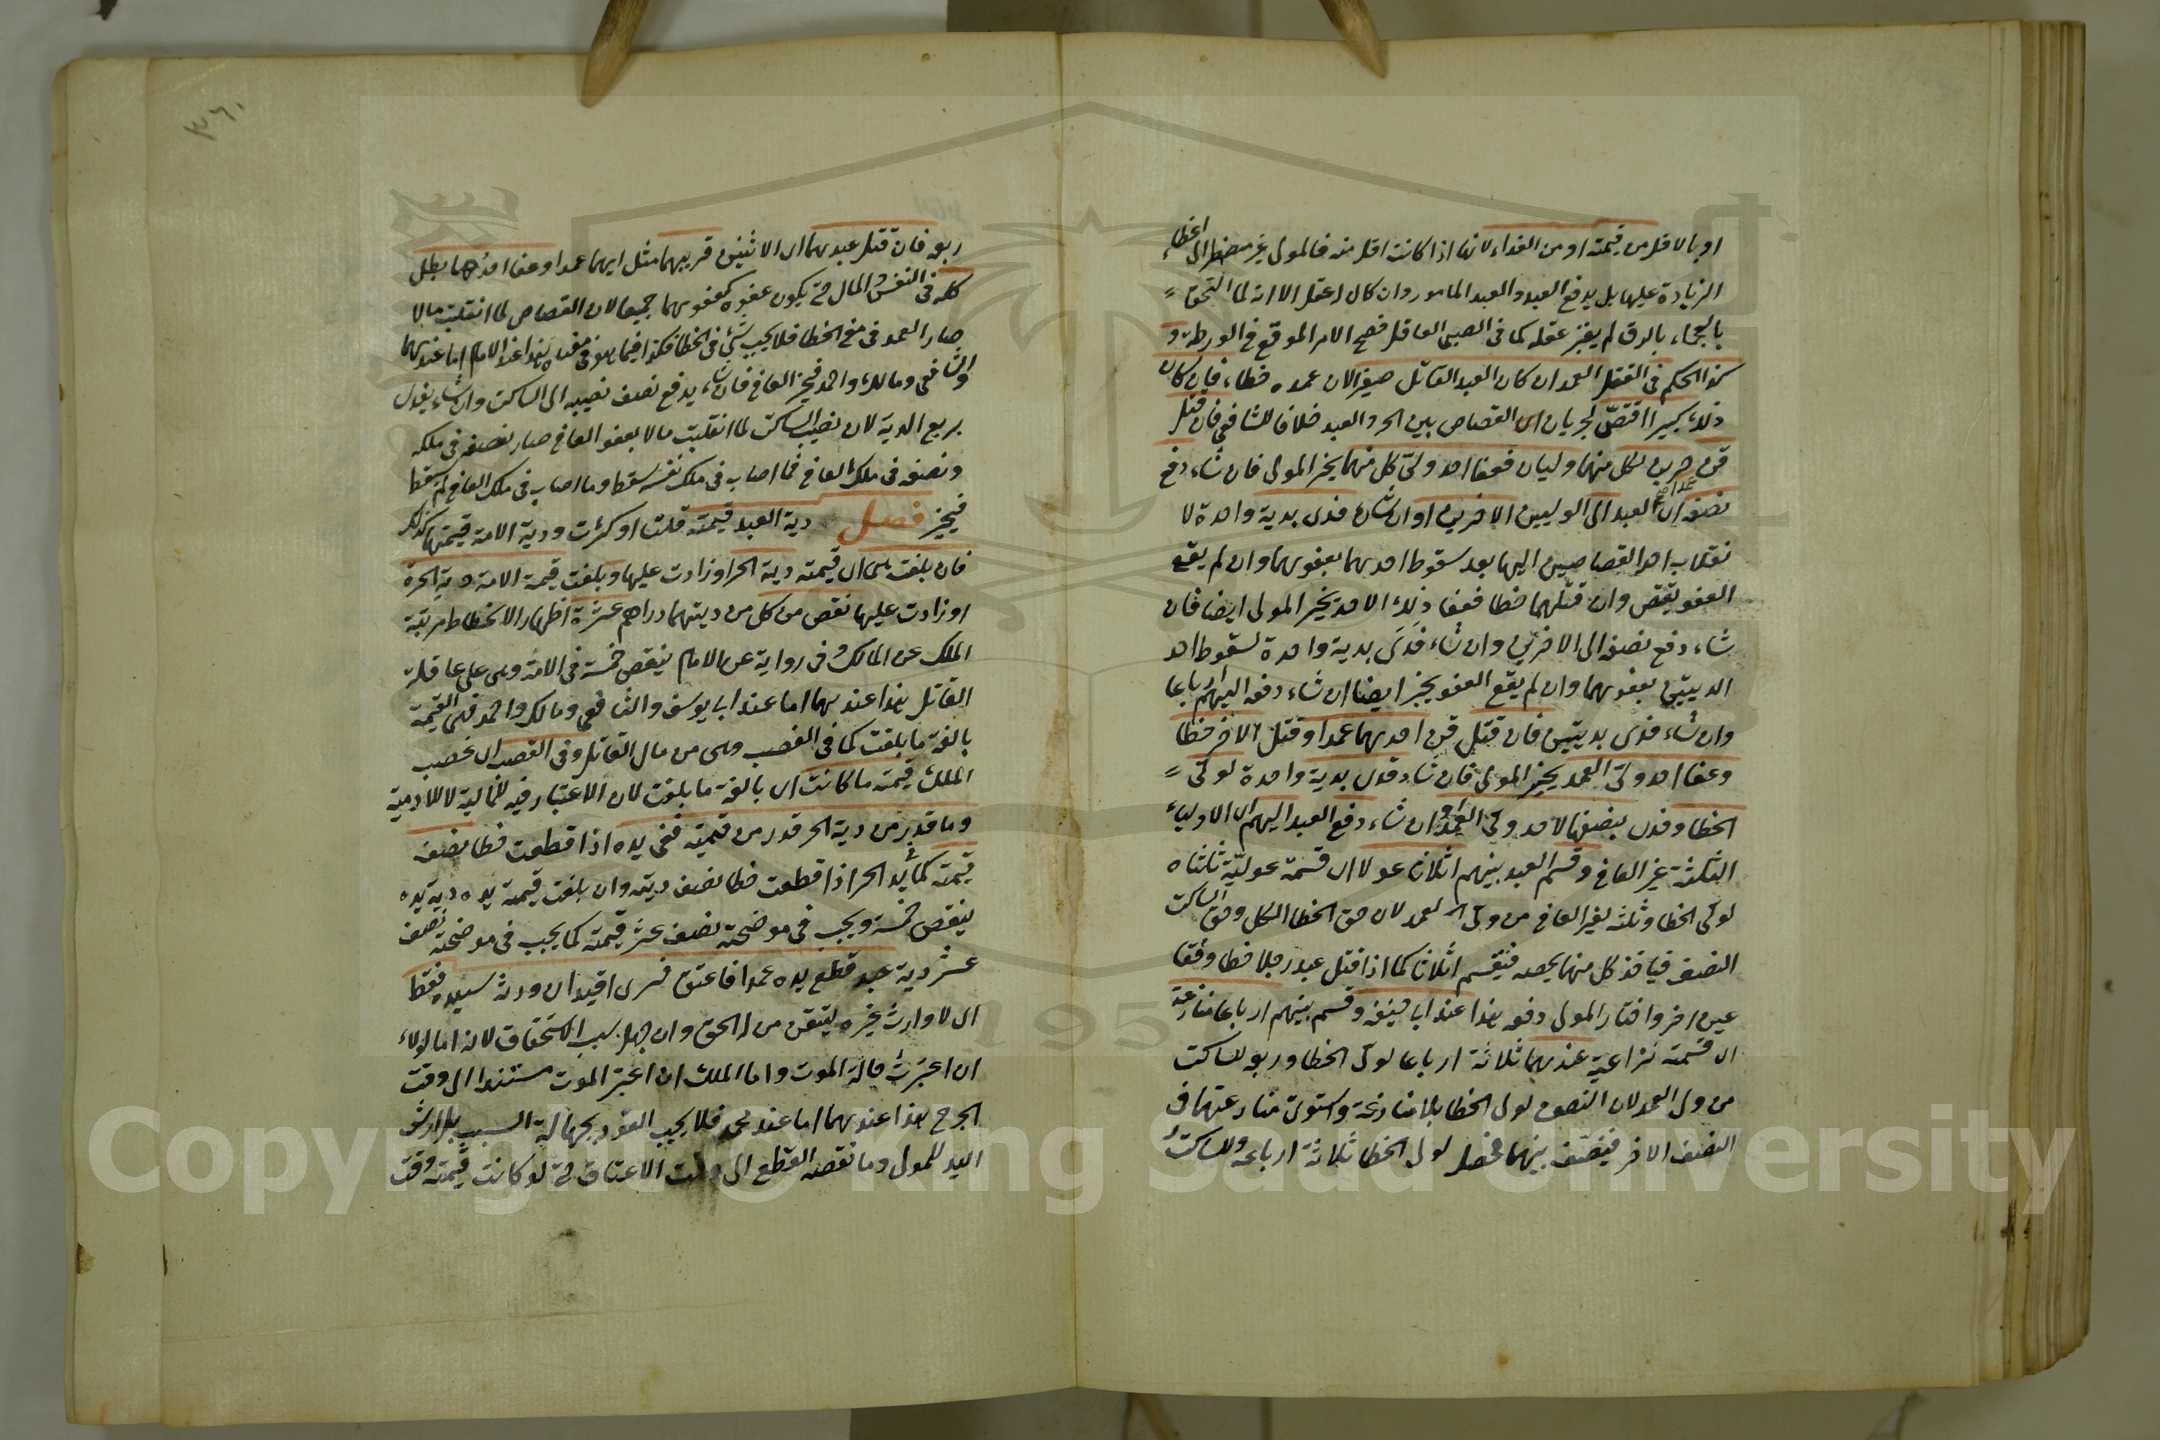 او بالاقل من قيمته او من الفداء لانها اذا كانت اقل منه فالمولى غير مضطر الى اعطاء
الزيادة عليها بل يدفع العبد والعبد المامور وان كان اعقل الا انه لما التحق
بالعجماء بالرق لم يعتبر عقله كما في الصبي العاقل فصح الامر الموقع في الورطة و
كذا الحكم في القتل العمد ان كان العبد القاتل صغيرا لان عمده خطاء فان كان
ذلك كبيرا اقتص لجريان اى القصاص بين الحر والعبد خلافا للشافعي فان قتل
قن حرين لكل منهما وليان فعفا احد ولى كل منهما يخير المولى فان شاء دفع
نصفه اى العبد الى الوليين الاخرين او ان شاء فدى بدية واحدة لا
نقلاب احد القصاصين اليهما بعد سقوط احدهما بعفوهما وان لم يقع
العفو يقتص وان قتلهما خطا فعفا ذلك الاحد يخير المولى ايضا فان
شاء دفع نصفه الى الاخرين وان شاء فدى بدية واحدة لسقوط احد
الديتين بعفوهما وان لم يقع العفو يخير ايضا ان شاء دفعه اليهم ارباعا
وان شاء فدى بديتين فان قتل قن احدهما عمدا وقتل الاخر خطا
وعفا احد ولى العمد يخير المولى فان شاء فدى بدية واحدة لولى
الخطا وفدى بنصفها لاحد ولى العمد او ان شاء دفع العبد اليهم اى الاولياء
الثلثة غير العافي وقسم العبد بينهم اثلاثا عولا اى قسمة عولية ثلثاه
لولى الخطا وثلثه لغير العافي من ولى العمد لان حق الخطا الكل وحق الساكت
النصف فياخذ كل منهما بحصه فيقسم اثلاثا كما اذا قتل عبد رجلا خطا وفقا
عين اخر واختار المولى دفعه هذا عند ابى حنيفة وقسم بينهم ارباعا منازعة
اى قسمة نزاعية عندهما ثلاثة ارباعا لولى الخطا وربعه للساكت
من ولى العمد لان النصف لولى الخطا بلا منازعة واستوت منازعتهما في
النصف الاخر فينصف بينهما فحصل لولى الخطا ثلاثة ارباعه وللساكت
٣٦٠
ربعه فان قتل عبدهما اى الاثنين قريبهما مثل ابيهما عمدا وعفا احدهما بطل
كله في النفس والمال حتى يكون عفوه كعفوهما جميعا لان القصاص لما انقلبت مالا
صار العمد في معنى الخطا فلا يجب شئ في الخطا فكذا فيما هو في معناه هذا عند الامام اما عندهما
والشافعي ومالك واحمد فيخير العافي فان شاء يدفع نصف نصيبه الى الساكت وان شاء يفدى
بربع الدية لان نصيب الساكت لما انقلبت مالا بعفو العافي صار نصفه في ملكه
ونصفه في ملك العافي فما اصاب في ملك نفسه سقط وما اصاب في ملك العافي لم يسقط
فيخير فصل دية العبد قيمته قلت او كثرت ودية الامة قيمتها كذلك
فان بلغت هى اى قيمته دية الحر او زادت عليها وبلغت قيمة الامة دية الحرة
او زادت عليها نقص من كل من ديتهما دراهم عشرة اظهار الانحطاط مرتبة
الملك عن المالك وفي رواية عن الامام ينقص خمسة في الامة وهى على عاقلة
القاتل هذا عندهما اما عند ابى يوسف والشافعي ومالك واحمد فهى القيمة
بالغة ما بلغت كما في الغصب وهى من مال القاتل وفي الغصب اى غصب
الملك قيمته ما كانت اى بالغة ما بلغت لان الاعتبار فيه للمالية لا للادمية
وما قدر من دية الحر قدر من قيمته ففى يده اذا قطعت خطا نصف
قيمته كما في يد الحر اذا قطعت خطا نصف ديته وان بلغت قيمة يده دية يده
ينقص خمسة ويجب في موضحته نصف عشر قيمته كما يجب في موضحته نصف
عشر دية عبد قطع يده عمدا فاعتق فسرى اقيد ان ورثه سيده فقط
اى لا وارث غيره لتيقن من له الحق وان جهل سبب الاستحقاق لانه اما الولاء
ان اعتبرت حالة الموت واما الملك ان اعتبر الموت مستندا الى وقت
الجرح هذا عندهما اما عند محمد فلا يجب القود بجهالة السبب بل ارش
اليد للمولى وما نقصه القطع الى وقت الاعتاق حتى لو كانت قيمته وقت
Copyright © King Saud University